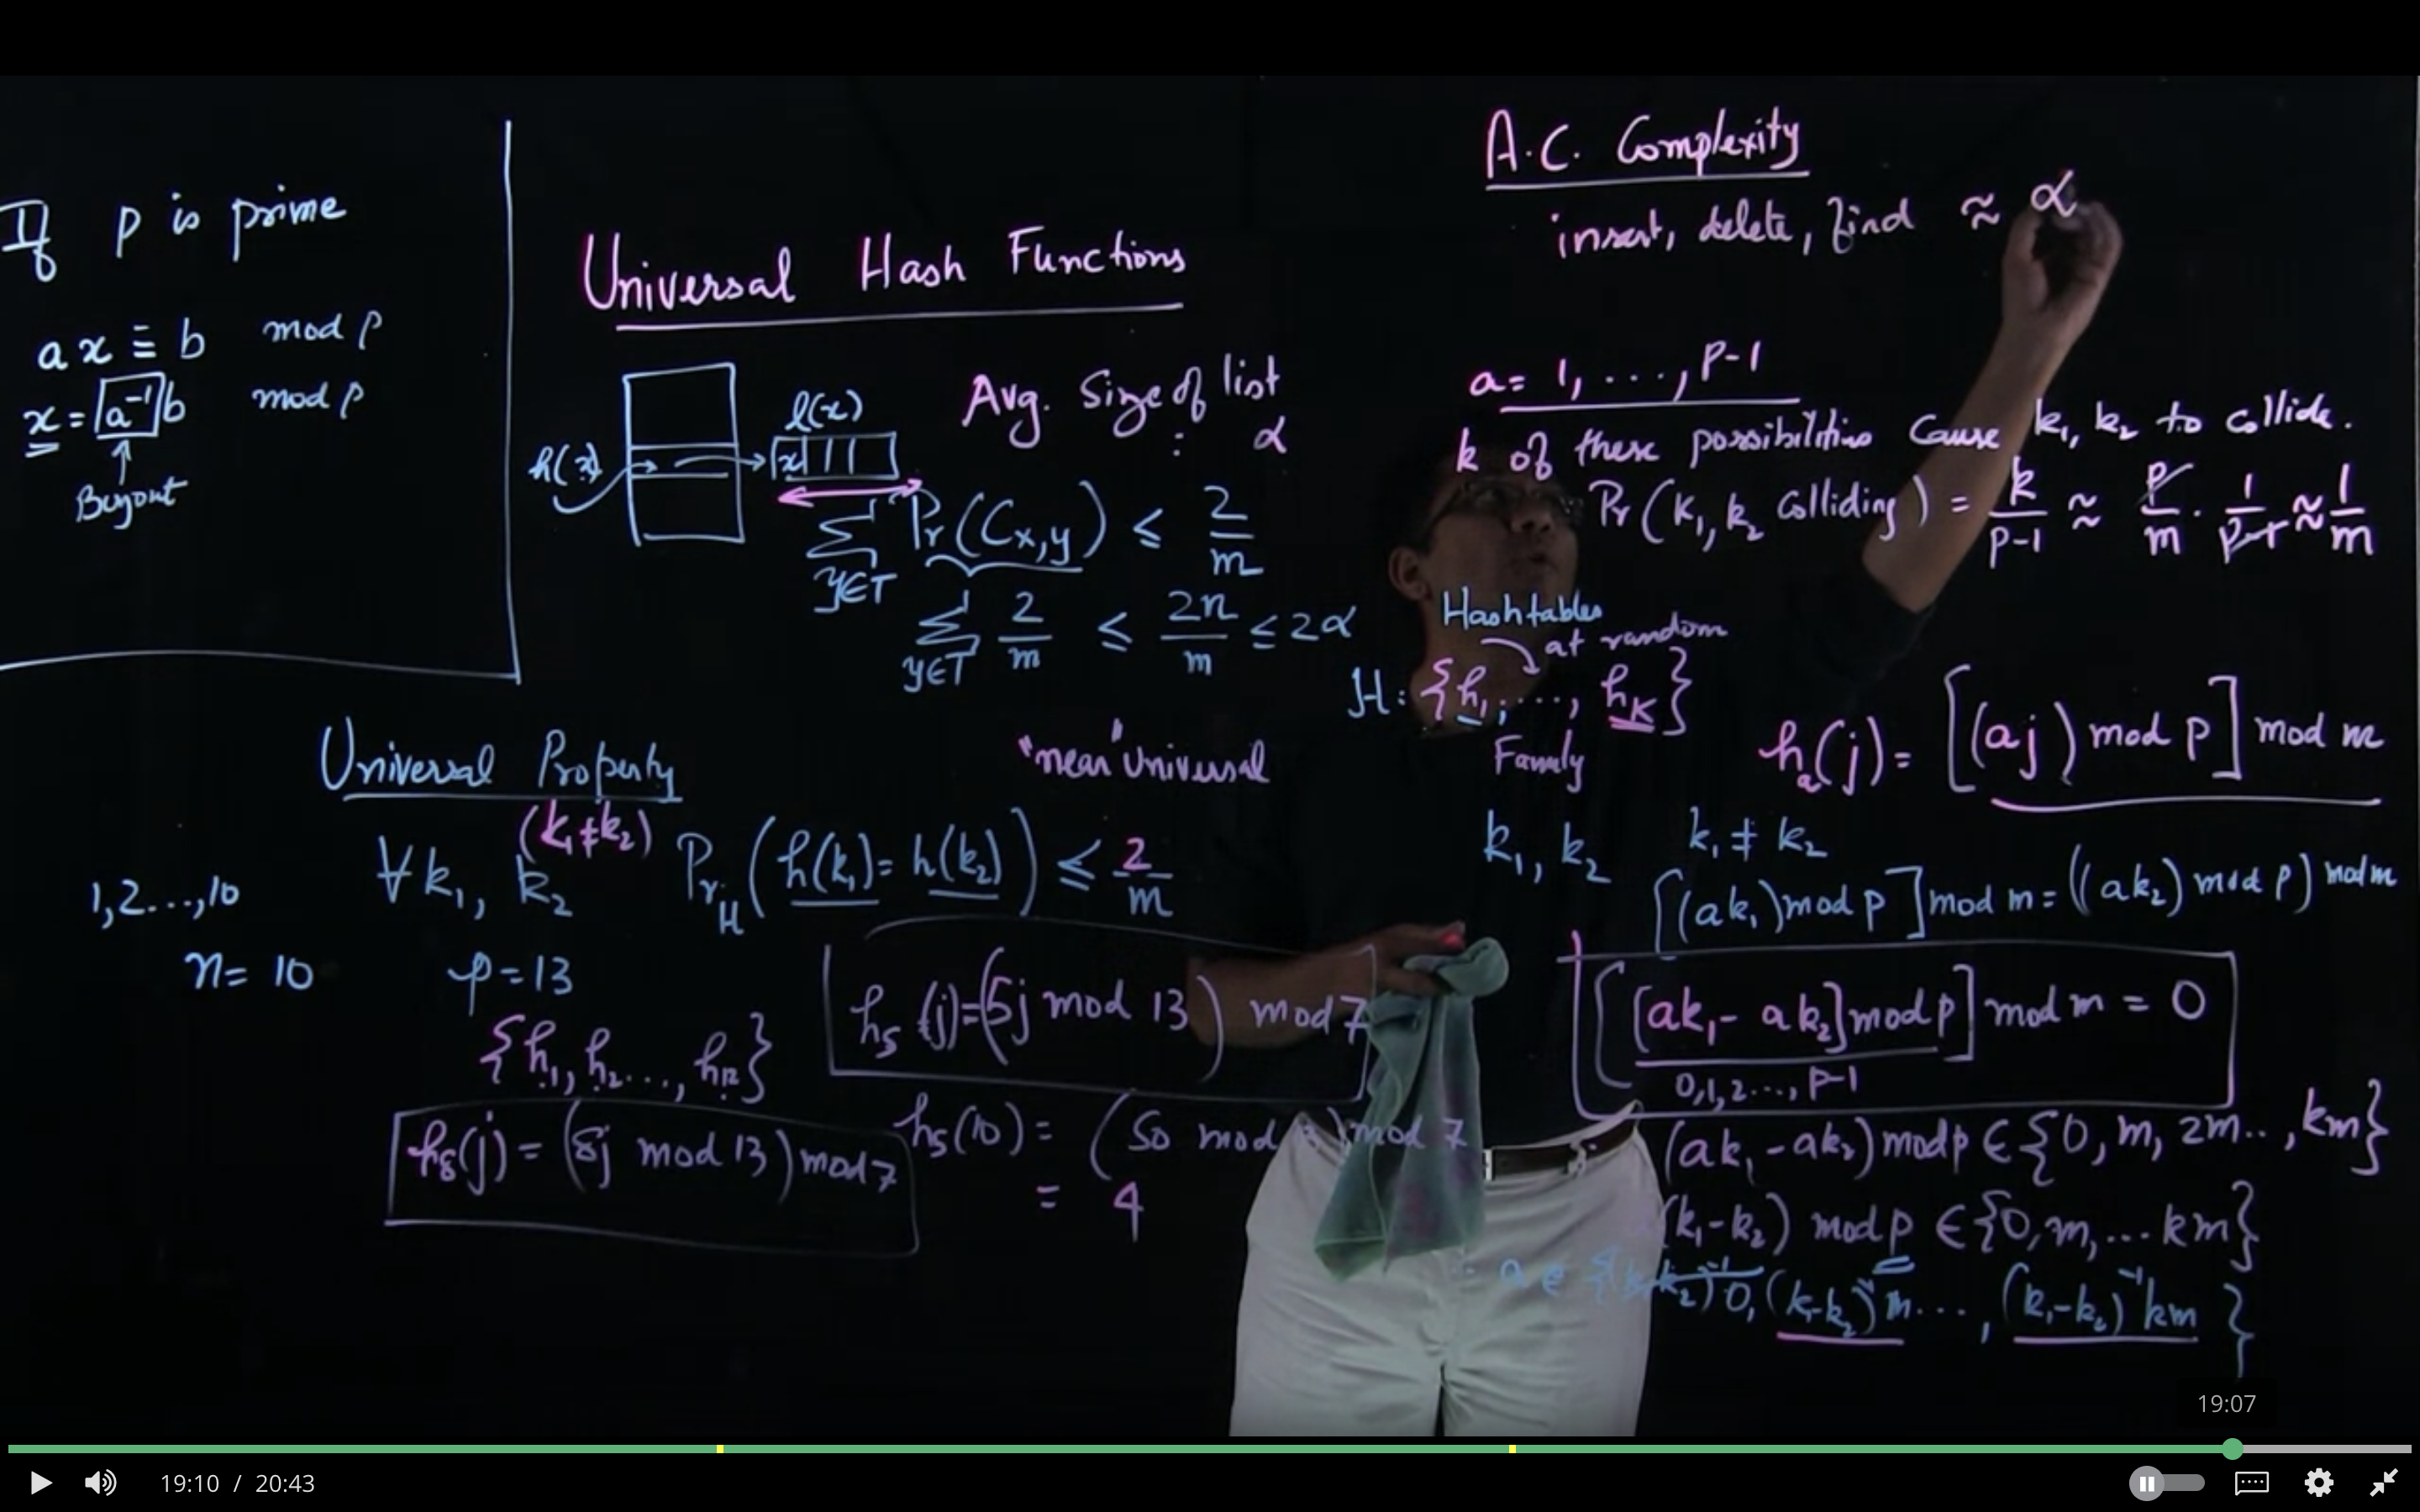 If p is prime
ax ≡ b mod p
x = a⁻¹ b mod p
Universal Hash Functions
h(x)
l(x)
x
Avg. Size of list : α
∑ y∈T Pr(Cx,y) ≤ 2/m
∑ y∈T 2/m ≤ 2n/m ≤ 2α
A.C. Complexity
insert, delete, find ≈ α
a = 1, ..., p-1
k of these possibilities cause k₁, k₂ to collide.
Pr(k₁, k₂ colliding) = k/p-1 ≈ p/m · 1/p-1 ≈ 1/m
Hashtables
at random
H: {h₁, ..., hK}
Family
hₐ(j) = [(aj) mod p] mod m
Universal Property
"near" Universal
(k₁≠k₂)
∀ k₁, k₂ Pr H (h(k₁) = h(k₂)) ≤ 2/m
1,2...,10
n = 10
p = 13
{h₁, h₂..., h12}
h₈(j) = (8j mod 13) mod 7
h₅(j) = (5j mod 13) mod 7
h₅(10) = (50 mod) mod 7
= 4
k₁, k₂ k₁ ≠ k₂
[(ak₁) mod p] mod m = ((ak₂) mod p) mod m
[[ak₁ - ak₂] mod p] mod m = 0
0,1,2..., p-1
(ak₁ - ak₂) mod p ∈ {0, m, 2m.., km}
(k₁-k₂) mod p ∈ {0, m, ... km}
a ∈ {(k₁-k₂)⁻¹0, (k₁-k₂)⁻¹m ..., (k₁-k₂)⁻¹km}
19:07
19:10 / 20:43